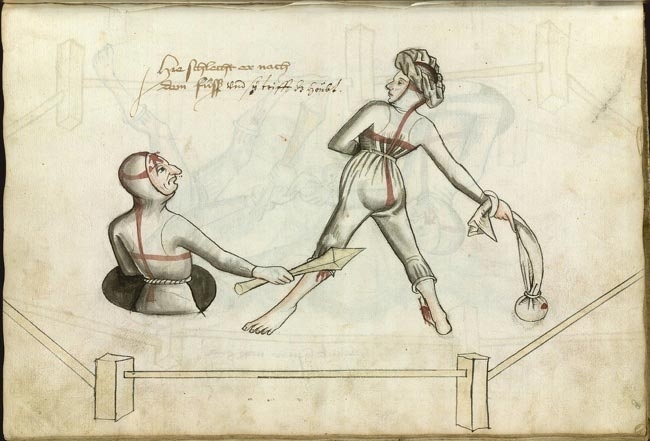 Hie schlecht er nach
dem fuſß und ſy trifft dz houbt.